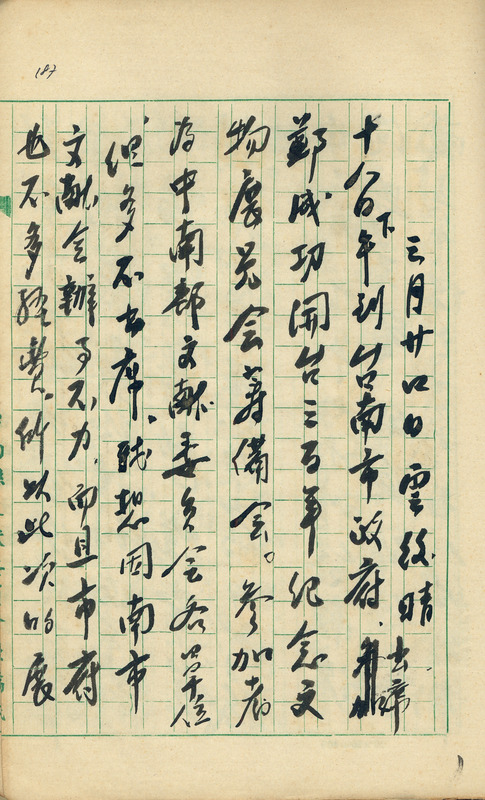 187
三月廿口日 雲後晴
十八日下午到台南市政府,出席
鄭成功開台三百年紀念文
物展覧会籌備会。参加者
為中南部文献委員会各單位
但多不出席,我想因南市
文献会辦事不力,而且市府
也不多経費,所以此次的展